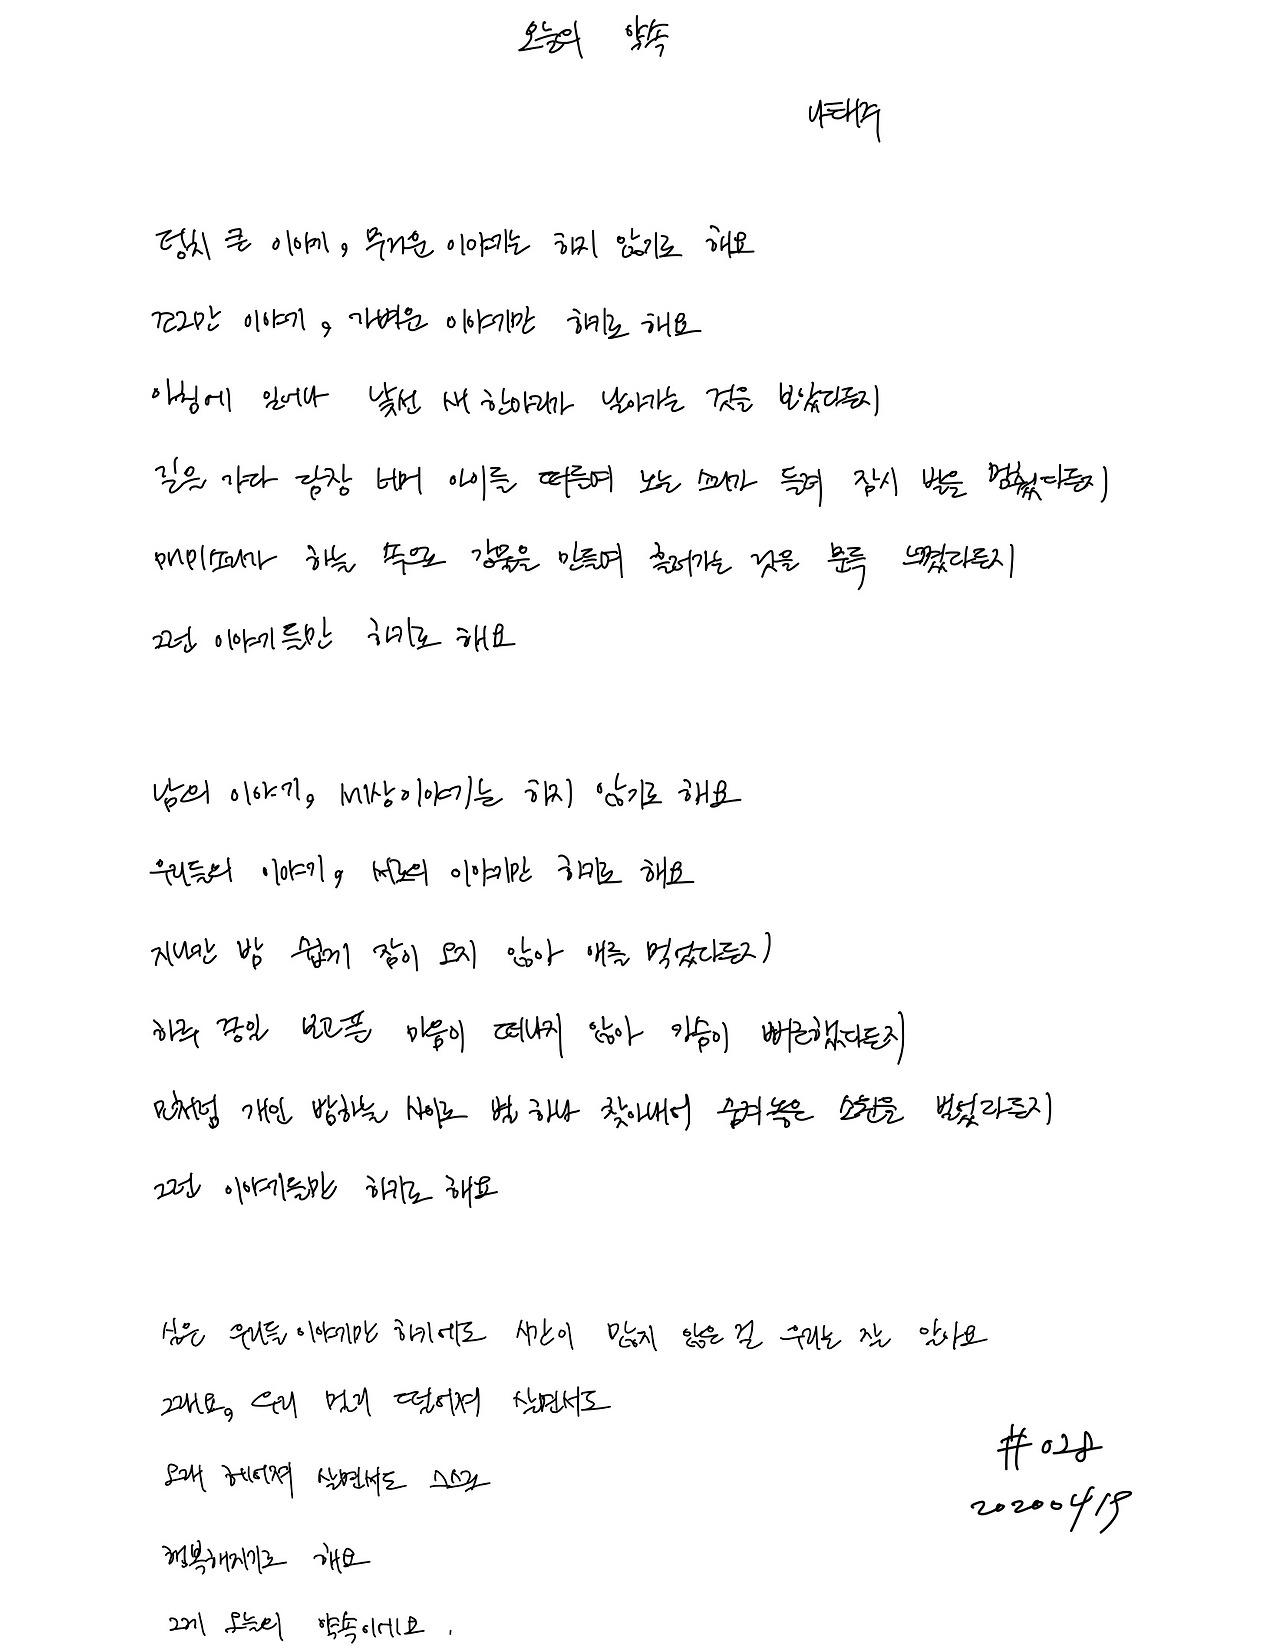 오늘의 약속
나태주
덩치 큰 이야기, 무거운 이야기는 하지 않기로 해요
조그만 이야기, 가벼운 이야기만 하기로 해요
아침에 일어나 낯선 새 한마리가 날아가는 것을 보았다든지
길을 가다 담장 너머 아이들 떠들며 노는 소리가 들려 잠시 발을 멈췄다든지
매미소리가 하늘 쪽으로 강물을 만들며 흘러가는 것을 문득 느꼈다든지
그런 이야기들만 하기로 해요
남의 이야기, 세상이야기는 하지 않기로 해요
우리들의 이야기, 서로의 이야기만 하기로 해요
지나간 밤 쉽게 잠이 오지 않아 애를 먹었다든지
하루 종일 보고픈 마음이 떠나지 않아 가슴이 뻐근했다든지
모처럼 개인 밤하늘 사이로 별 하나 찾아내어 숨겨놓은 소원을 빌었다든지
그런 이야기들만 하기로 해요
실은 우리들 이야기만 하기에도 시간이 많지 않은 걸 우리는 잘 알아요
그래요, 우리 멀리 떨어져 살면서도
오래 헤어져 살면서도 스스로
행복해지기로 해요
그게 오늘의 약속이에요.
#028
20200419